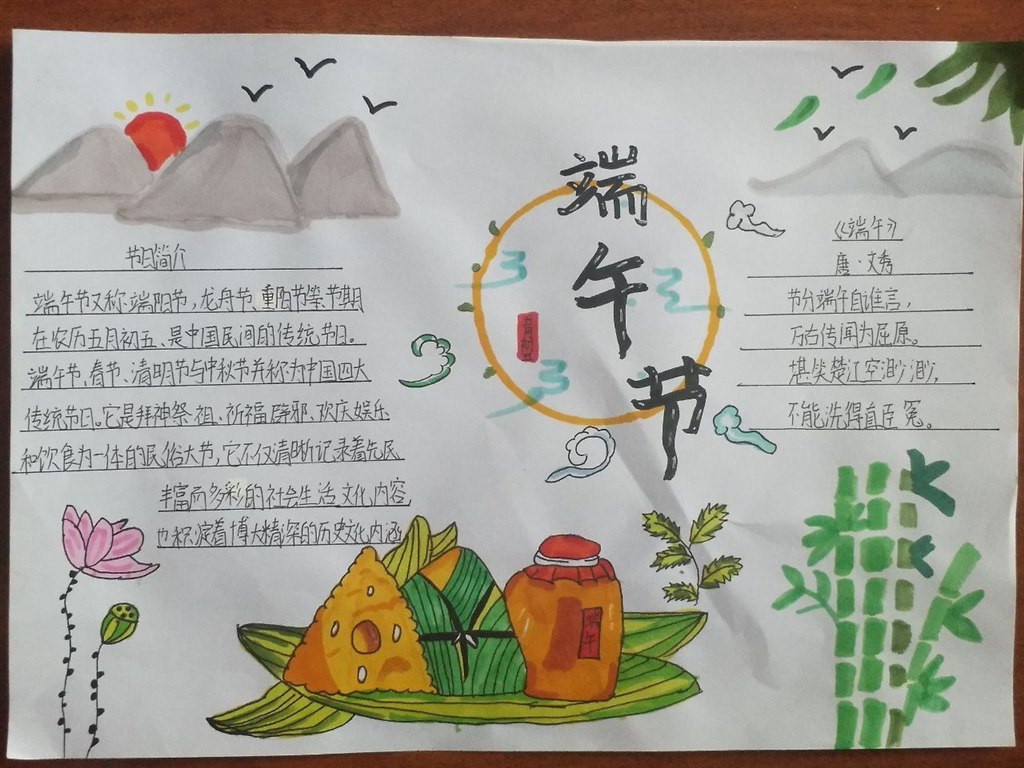 端午节
五月初五
节日简介
端午节又称端阳节，龙舟节、重阳节等节期
在农历五月初五、是中国民间的传统节日。
端午节、春节、清明节与中秋节并称为中国四大
传统节日。它是拜神祭祖、祈福辟邪、欢庆娱乐
和饮食为一体的民俗大节，它不仅清晰记录着先民
丰富而多彩的社会生活文化内容
也积淀着博大精深的历史文化内涵
《端午》
唐·文秀
节分端午自谁言，
万古传闻为屈原。
堪笑楚江空渺渺，
不能洗得直臣冤。
端午